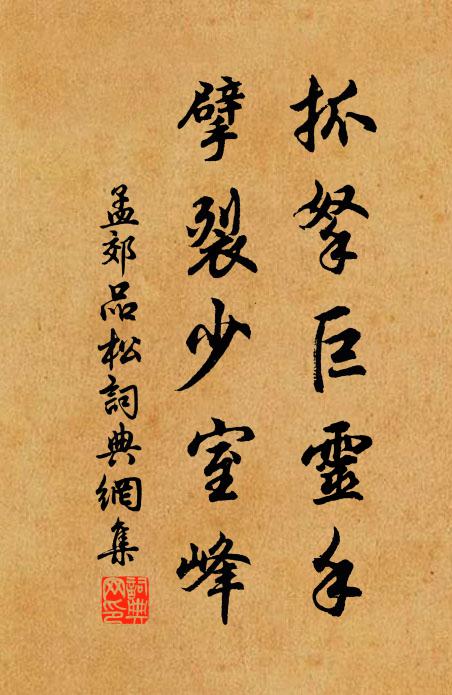 抓拏巨靈手
擘裂少室峰
孟郊品松詞典網集
詞典網印